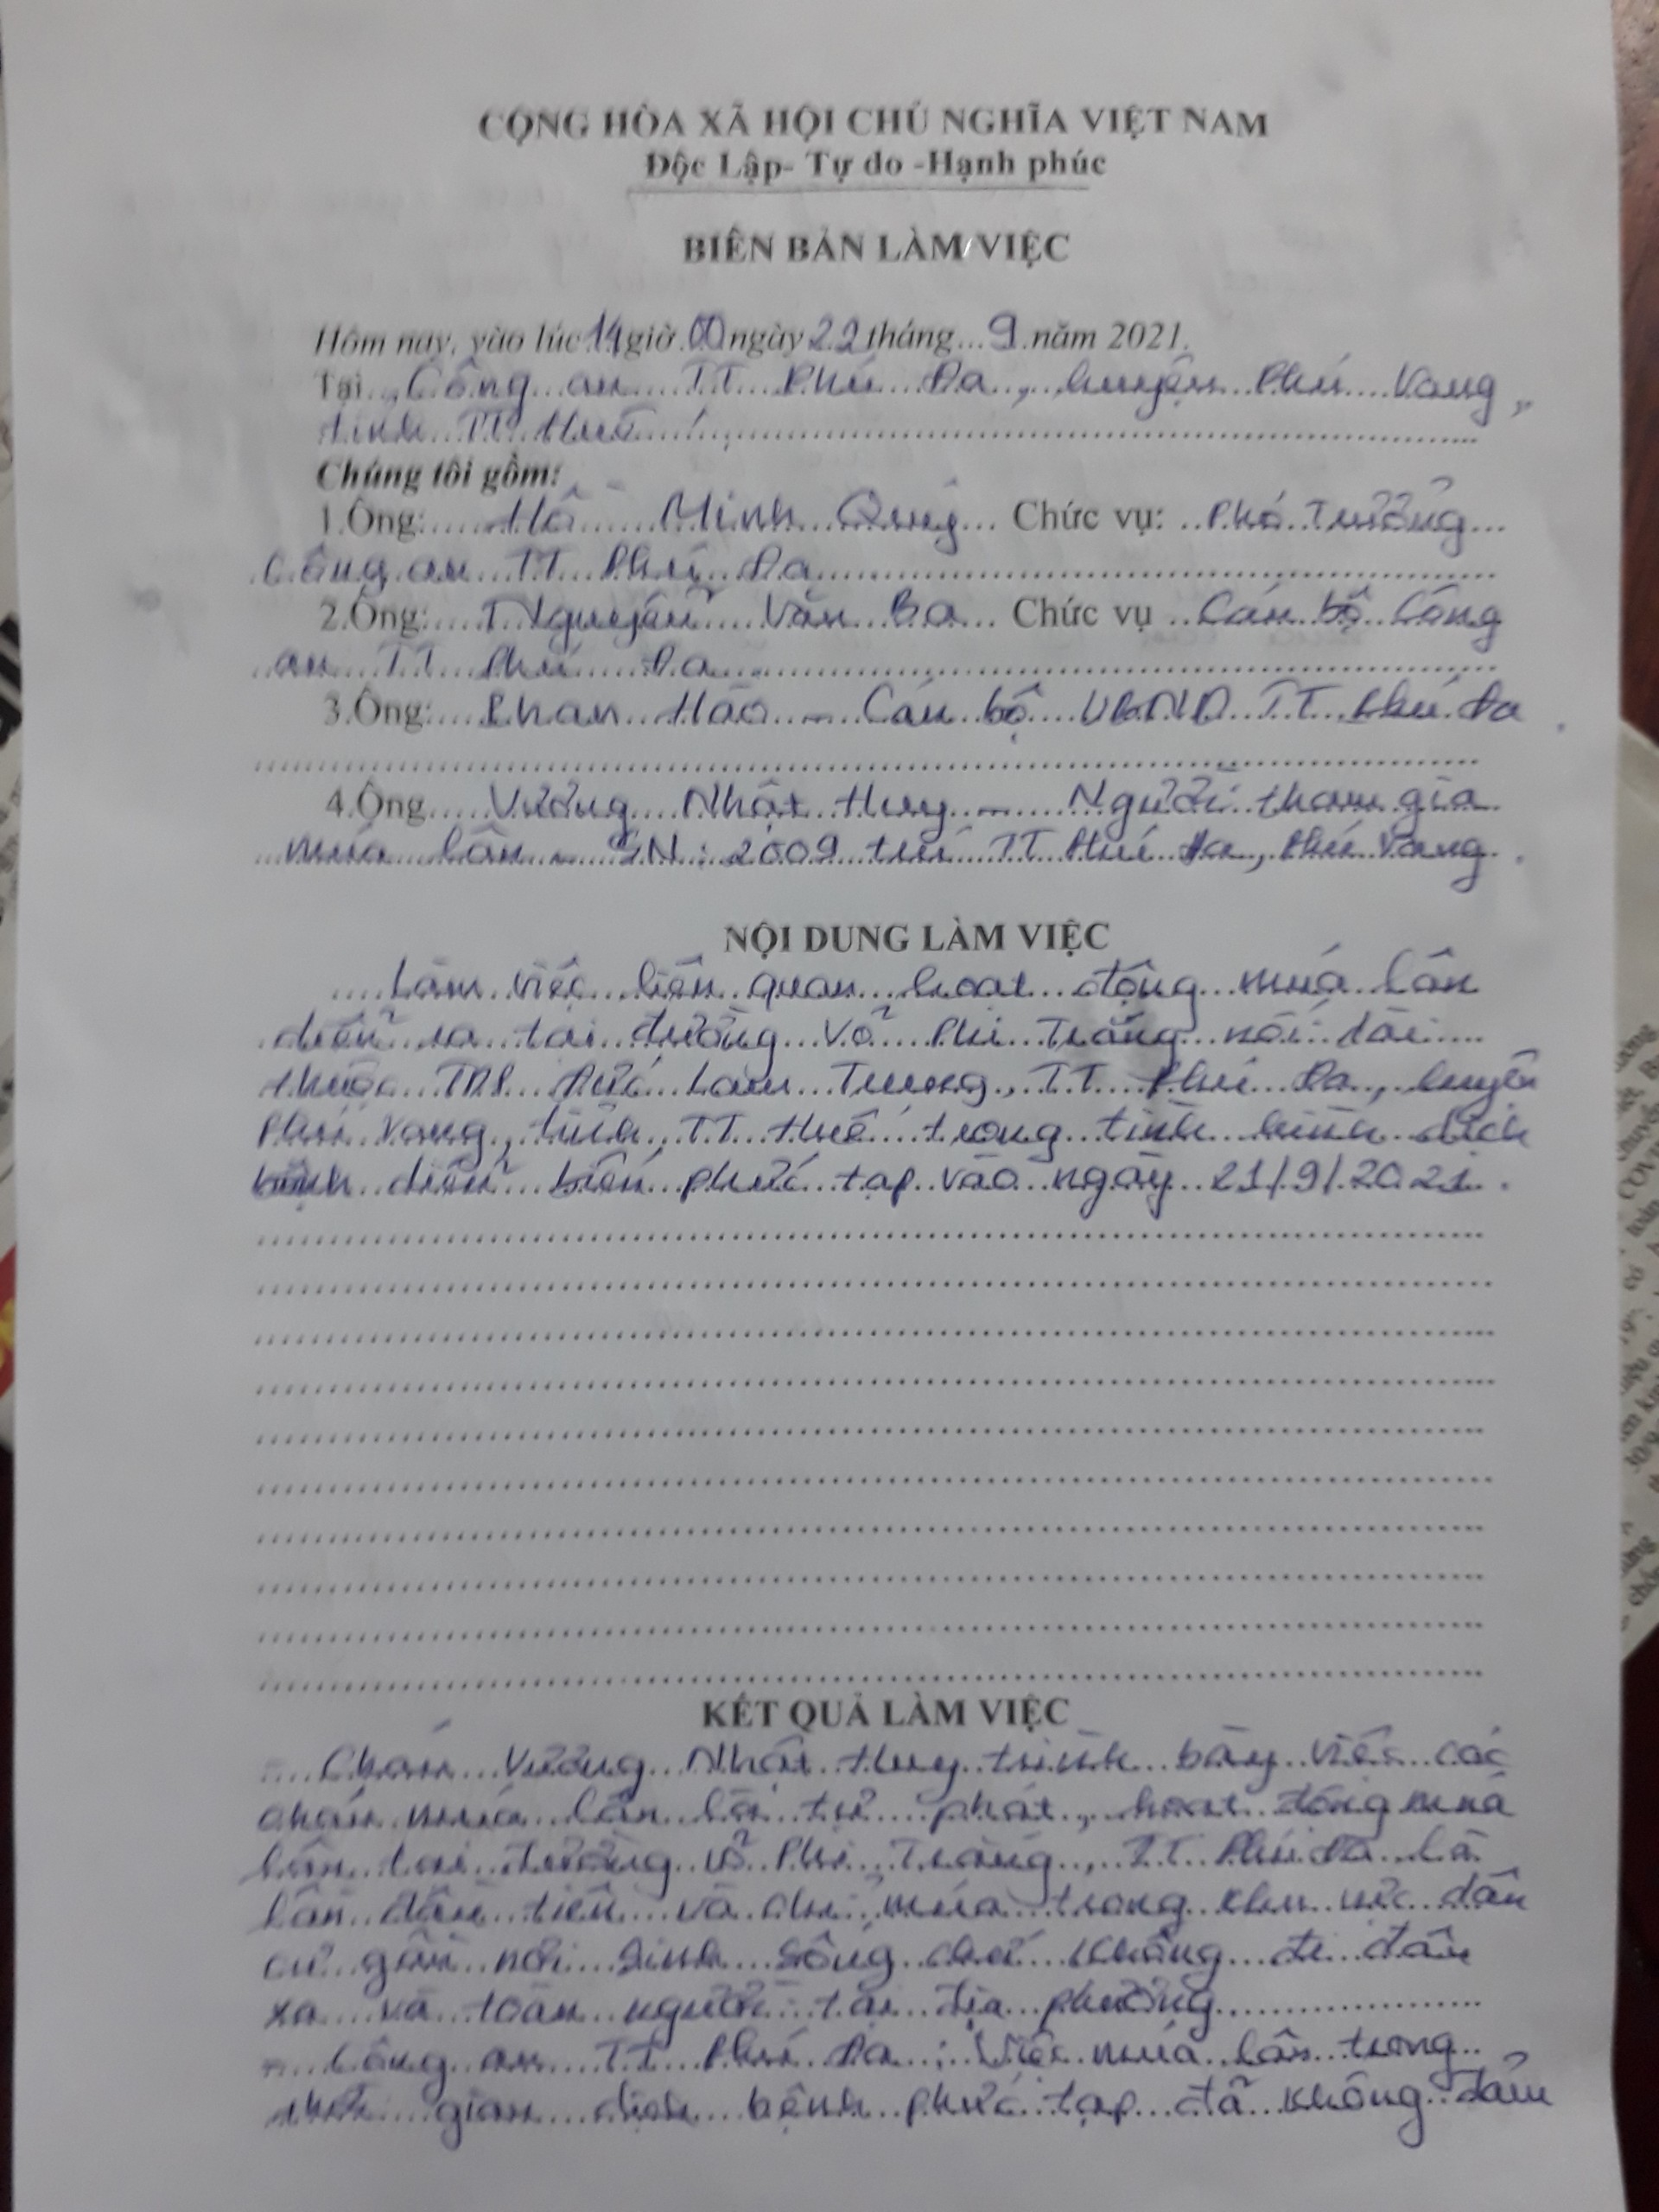 CỘNG HÒA XÃ HỘI CHỦ NGHĨA VIỆT NAM
Độc Lập- Tự do -Hạnh phúc
BIÊN BẢN LÀM VIỆC
Hôm nay, vào lúc 14 giờ 00 ngày 22 tháng 9 năm 2021.
Tại Công an TT Phú Đa, huyện Phú Vang,
tỉnh TT Huế
Chúng tôi gồm:
1.Ông: Hồ Minh Quý Chức vụ: Phó Trưởng
Công an TT Phú Đa
2.Ông: Nguyễn Văn Ba Chức vụ Cán bộ Công
an TT Phú Đa
3.Ông: Phan Hão - Cán bộ UBND TT Phú Đa
4.Ông Vương Nhật Huy - Người tham gia
múa lân - SN: 2009 trú TT Phú Đa, Phú Vang.
NỘI DUNG LÀM VIỆC
Làm việc liên quan hoạt động múa lân
diễn ra tại đường Võ Phi Trắng nối dài
thuộc TDP Đức Lam Trung, TT Phú Đa, huyện
Phú Vang, tỉnh TT Huế trong tình hình dịch
bệnh diễn biến phức tạp vào ngày 21/9/2021.
KẾT QUẢ LÀM VIỆC
- Cháu Vương Nhật Huy trình bày việc các
cháu múa lân là tự phát, hoạt động múa
lân tại đường Võ Phi Trắng, TT Phú Đa là
lần đầu tiên và chỉ múa trong khu vực dân
cư gần nơi sinh sống chứ không đi đâu
xa và toàn người tại địa phương
- Công an TT Phú Đa: Việc múa lân trong
thời gian dịch bệnh phức tạp đã không đảm